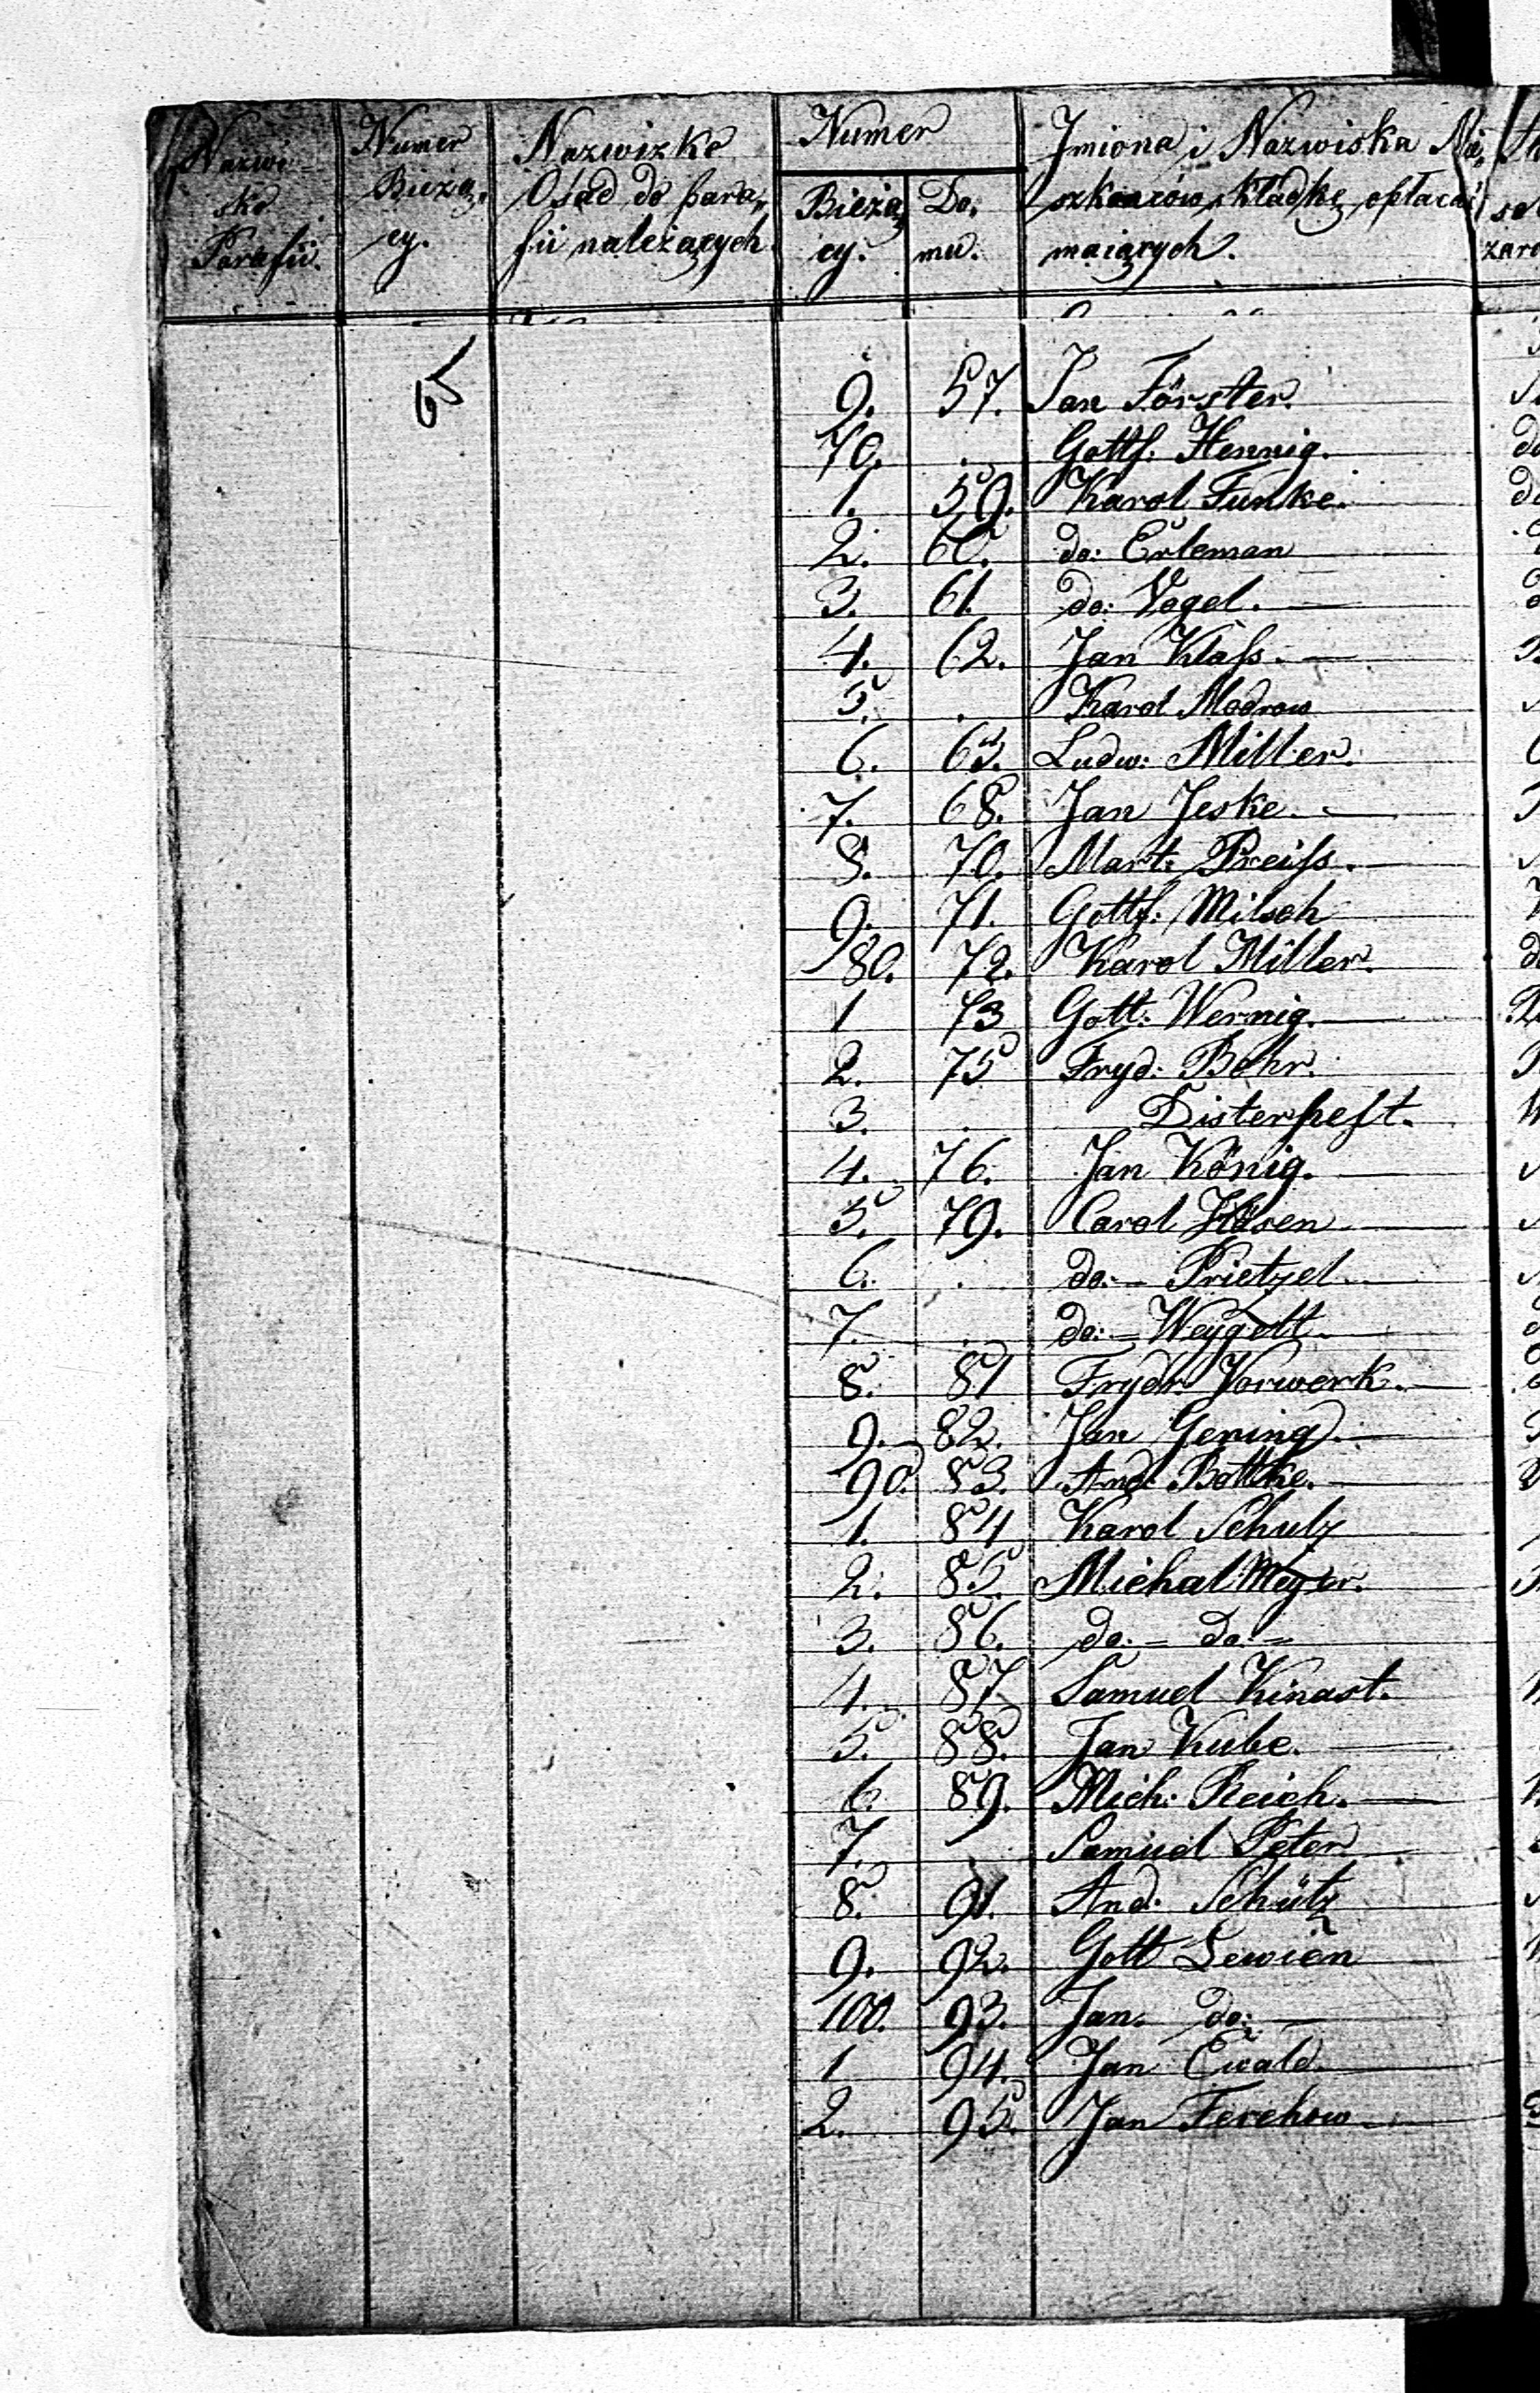 Nazwi-
sko
Parafii.
Numer
Bieżą,,
cy.
Nazwizko
Osad do para,,
fii należących
Numer
Bieżą,,
cy.
Do,,
mu.
Jmiona i Nazwiska Mie,,
szkancow składkę opłacać
maiących.
65
9. 57. Jan Förster.
70. . Gottf: Hennig.
1. 59. Karol Funke.
2. 60. do: Erleman
3. 61. do: Vogel.
4. 62. Jan Klaſs.
5. . Karol Modrow
6. 63. Ludw: Miller.
7. 68. Jan Jeske.
8. 70. Mart: Preiſs.
9. 71. Gottf: Milsch
80. 72. Karol Miller.
1 73 Gott: Wernig.
2. 75 Fryd: Behr.
3. . Disterheft.
4. 76. Jan König.
5. 79. Carol Hösen
6. . do: = Prietzel
7. . do: = Weygelt
8. 81 Frydr: Vorwerk.
9. 82. Jan Gering
90. 83. And: Bottke.
1. 84 Karol Schulz
2. 85. Michal Meyer.
3. 86. do: = do: =
4. 87 Samuel Kinast.
5. 88. Jan Kube.
6. 89. Mich: Reich.
7. Samuel Peter
8. 91. And: Schütz
9. 92. Gott Lewien
100. 93. Jan. do:
1 94. Jan Ewald
2. 95. Jan Ferchow